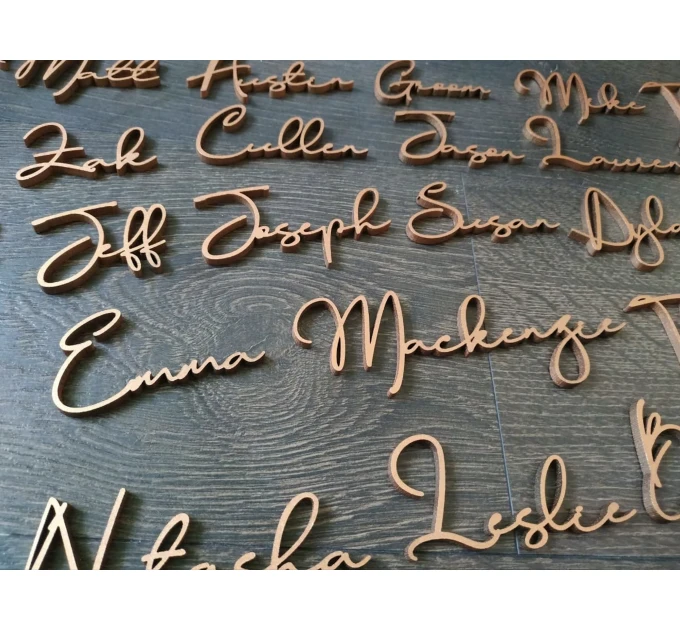 Matt Austin Groom Mike
Zak Cullen Jason Lauren
Jeff Joseph Susan Dyla
Emma Mackenzie
Leslie
Natasha